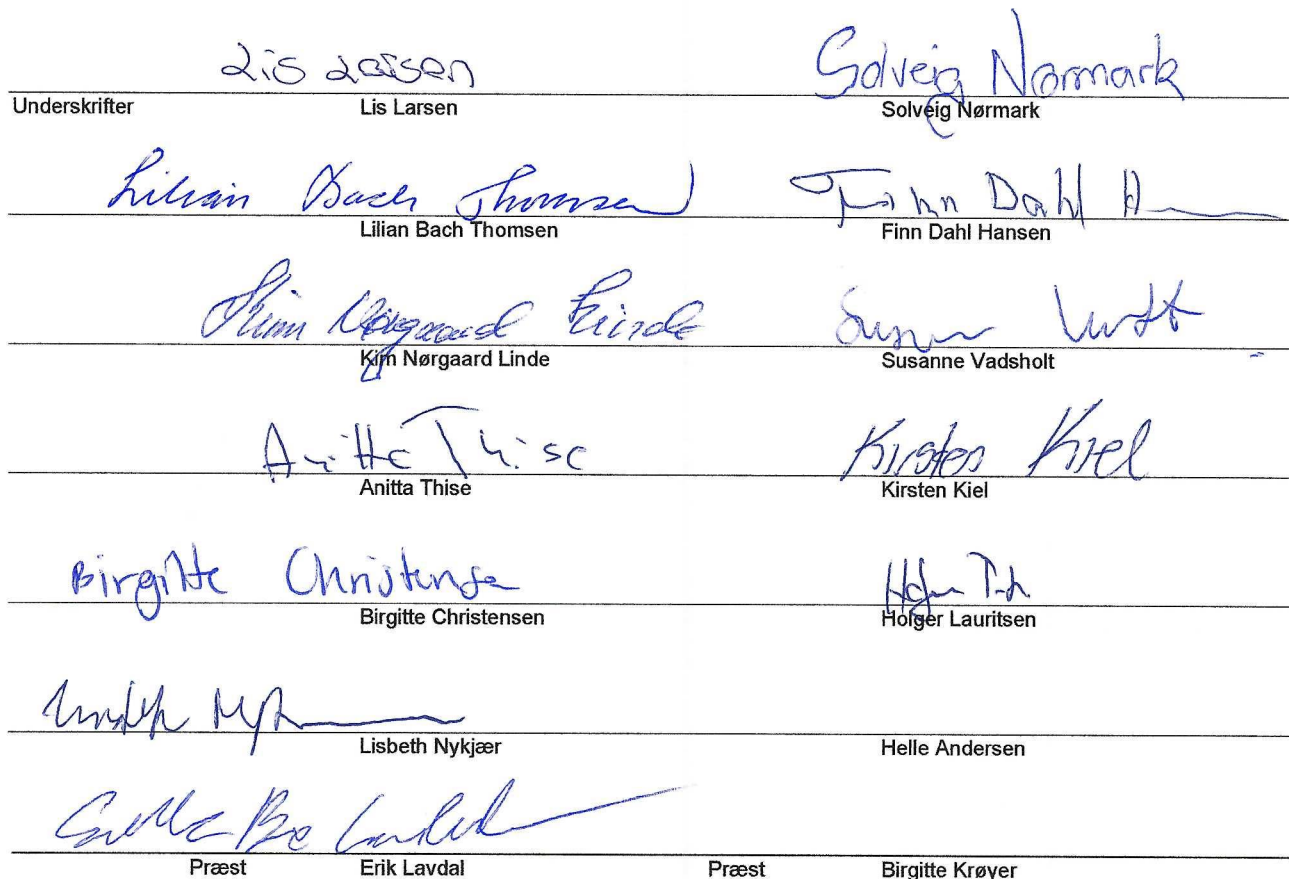 Lis Larsen Solveig Nørmark
Underskrifter Lis Larsen Solveig Nørmark
Lilian Bach Thomsen Finn Dahl H
Lilian Bach Thomsen Finn Dahl Hansen
Kim Nørgaard Linde
Kim Nørgaard Linde Susanne Vadsholt
Anitta Thise Kirsten Kiel
Anitta Thise Kirsten Kiel
Birgitte Christensen
Birgitte Christensen Holger Lauritsen
Lisbeth Nykjær Helle Andersen
Præst Erik Lavdal Præst Birgitte Krøyer